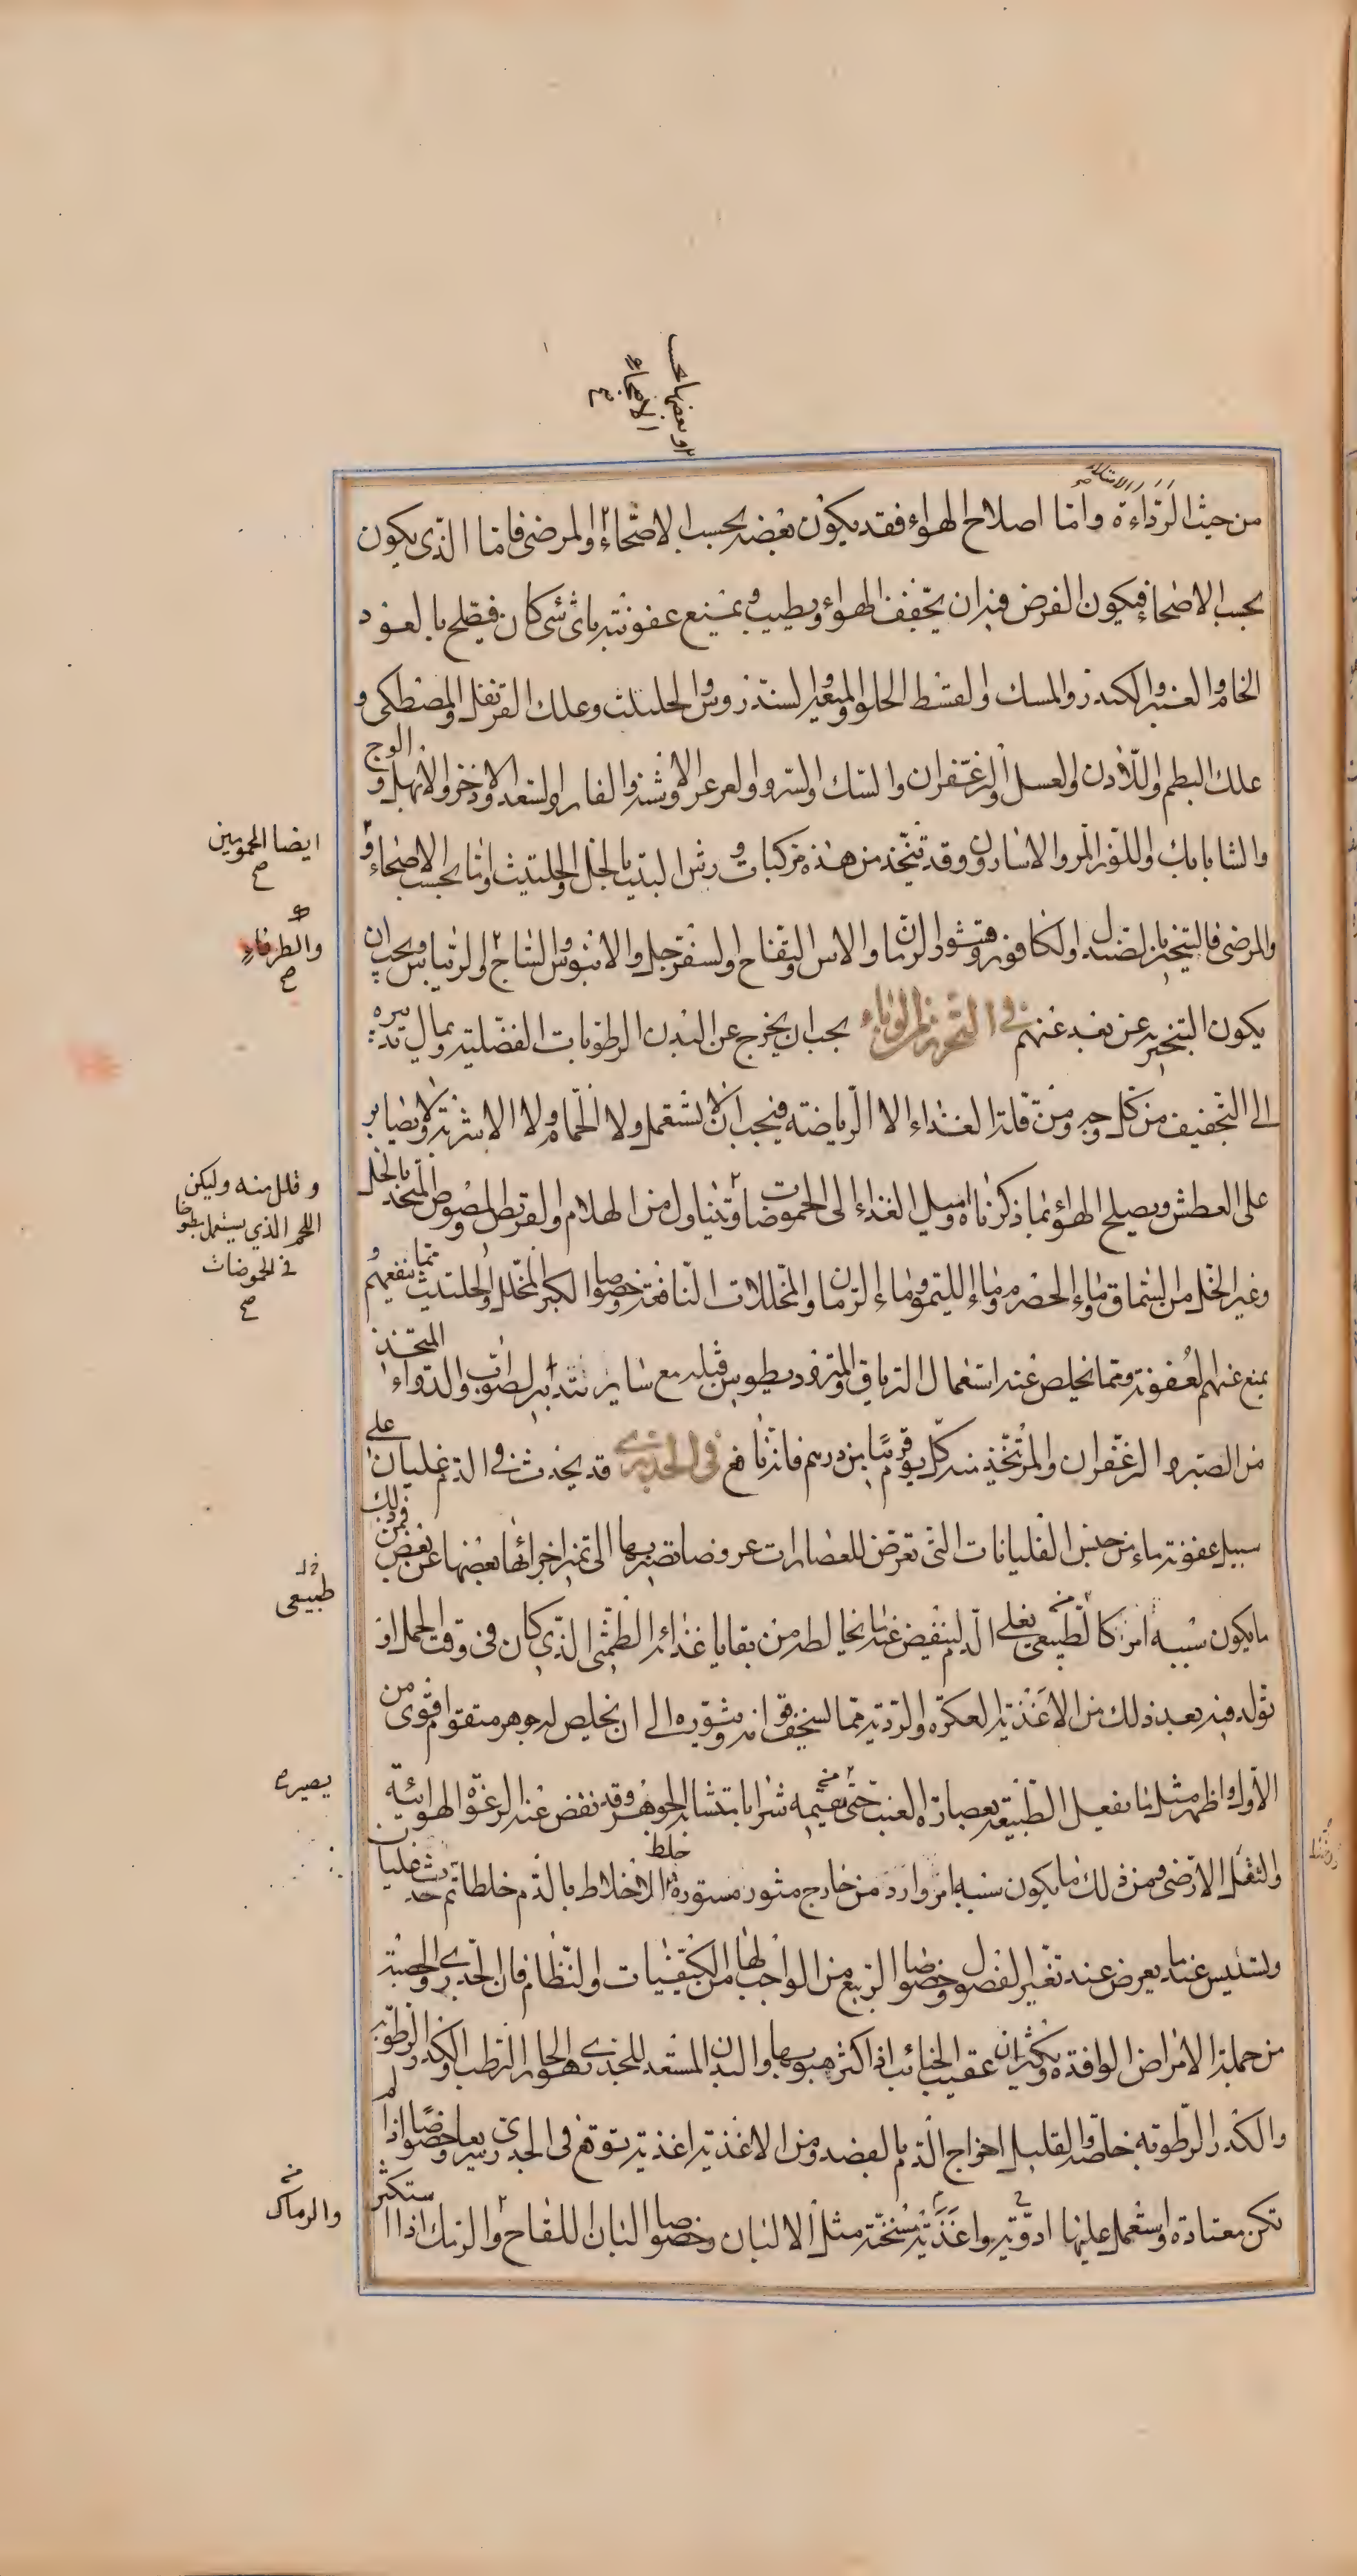 او بعضها بحسب
الاصحاء
صح
من حيث الرداءة واما اصلاح الهواء فقد يكون بعضه بحسب الاصحاء والمرضى فاما الذي يكون
بحسب الاصحاء فيكون الغرض فيه ان يجفف الهواء ويطيب ويمنع عفونته باى شئ كان فيصلح بالعود
الخام والعنبر والكندر والمسك والقسط الحلو والميعة والسندروس والحلتيت وعلك القرنفل والمصطكى و
علك البطم واللاذن والعسل والزعفران والسك والسرو والعرعر والاشنة والغار والسعد والاذخر والابهل والوج
والشابابك واللوز المر والاسارون وقد تتخذ من هذه مركبات ورش البيت بالخل والحلتيث واما بحسب الاصحاء و
ايضا المحمومين
صح
والمرضى فالتبخير بالصندل والكافور وقشور الرمان والاس والتفاح والسفرجل والابنوس والساج والريباس ويجب ان
والطرفاء
صح
يكون التبخير عن بعد عنهم في التحرز من الوباء يجب ان يخرج عن البدن الرطوبات الفضلية ويمال تدبيره
الى التجفيف من كل وجه ومن قلة الغذاء الا الرياضة فيجب ان لا تستعمل ولا الحمام ولا الاشربة ولا يصابر
على العطش ويصلح الهواء بما ذكرناه ويميل الغذاء الى الحموضات ويتناول من الهلام والقريص والمصوص المتخذ بالخل
و قلل منه وليكن
اللحم الذي يستعمل مطبوخا
في الحموضات
صح
وغير الخل من السماق وماء الحضرم وماء الليمو وماء الرمان والمخللات النافعة وخصوصا الكبر المخلل والحلتيت مما ينفعهم و
يمنع عنهم العفونة ومما يخلص عنه استعمال الترياق والمثروديطوس قبله مع ساير تدابير الصواب والدواء المتخذ
من الصبر والزعفران والمر يتخذ منه كل يوم قريبا من درهم فانه نافع في الجدري قد يحدث في الدم غليان على
سبيل عفونة ماء من جنس الغليانات التى تعرض للعصارات عروضا تصير بها الى تميز اجزائها بعضها عن بعض فمن ذلك
ما يكون سببه امر كالطبيعي يغلي الدم لينفض عنه ما يخالطه من بقايا غذائه الطمثى الذي كان فى وقت الحمل او
طبيعى
تولد فيه بعد ذلك من الاغذية العكرة والردية مما يسخف قوامه ويثوره الى ان يخلص له جوهر متقوم اقوى من
الاول واظهر مثل ما تفعل الطبيعة بعصارة العنب حتى تقيمه شرابا متشابه الجوهر وقد نفض عنه الرغوة الهوائية
يصيره
والثفل الارضى ومن ذلك ما يكون سببه امر وارد من خارج مثور الاخلاط بالدم خلطا ثم حدث غليان
خلط
ونشيش عنه ما يعرض عند تغير الفصول وخصوصا الربيع من الواجب لها من الكيفيات والنظام فان الجدري والحصبة
من جملة الامراض الوافدة وتكثر عقيب الجنائب اذا كثر هبوبها والبدن المستعد للجدري هو الحار الرطب والكدر الرطوبة
والكدر الرطوبة خاصة والقليل اخراج الدم بالفصد ومن الاغذية اغذية توقع فى الجدري سريعا وخصوصا اذا لم
تكن معتادة واستعمل عليها ادوية واغذية مسخنة مثل الالبان وخصوصا البان اللقاح والرمك اذا استكثر
والرماك